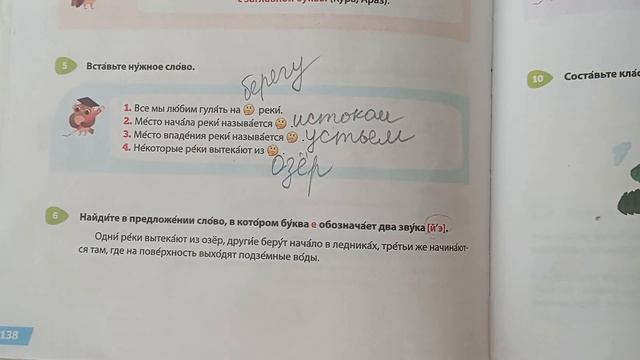 с заглавной буквы (Кура, Араз).
5 Вста́вьте ну́жное сло́во.
берегу
1. Все мы лю́бим гуля́ть на 🤔 реки́.
2. Ме́сто нача́ла реки́ называ́ется 🤔 . истоком
3. Ме́сто впаде́ния реки́ называ́ется 🤔 . устьем
4. Не́которые ре́ки вытека́ют из 🤔 .
озёр
6 Найди́те в предложе́нии сло́во, в кото́ром бу́ква е обознача́ет два зву́ка [й'э].
Одни́ ре́ки вытека́ют из озёр, други́е беру́т нача́ло в ледника́х, тре́тьи же начина́ют-
ся там, где на пове́рхность выхо́дят подзе́мные во́ды.
138
10 Соста́вьте кла